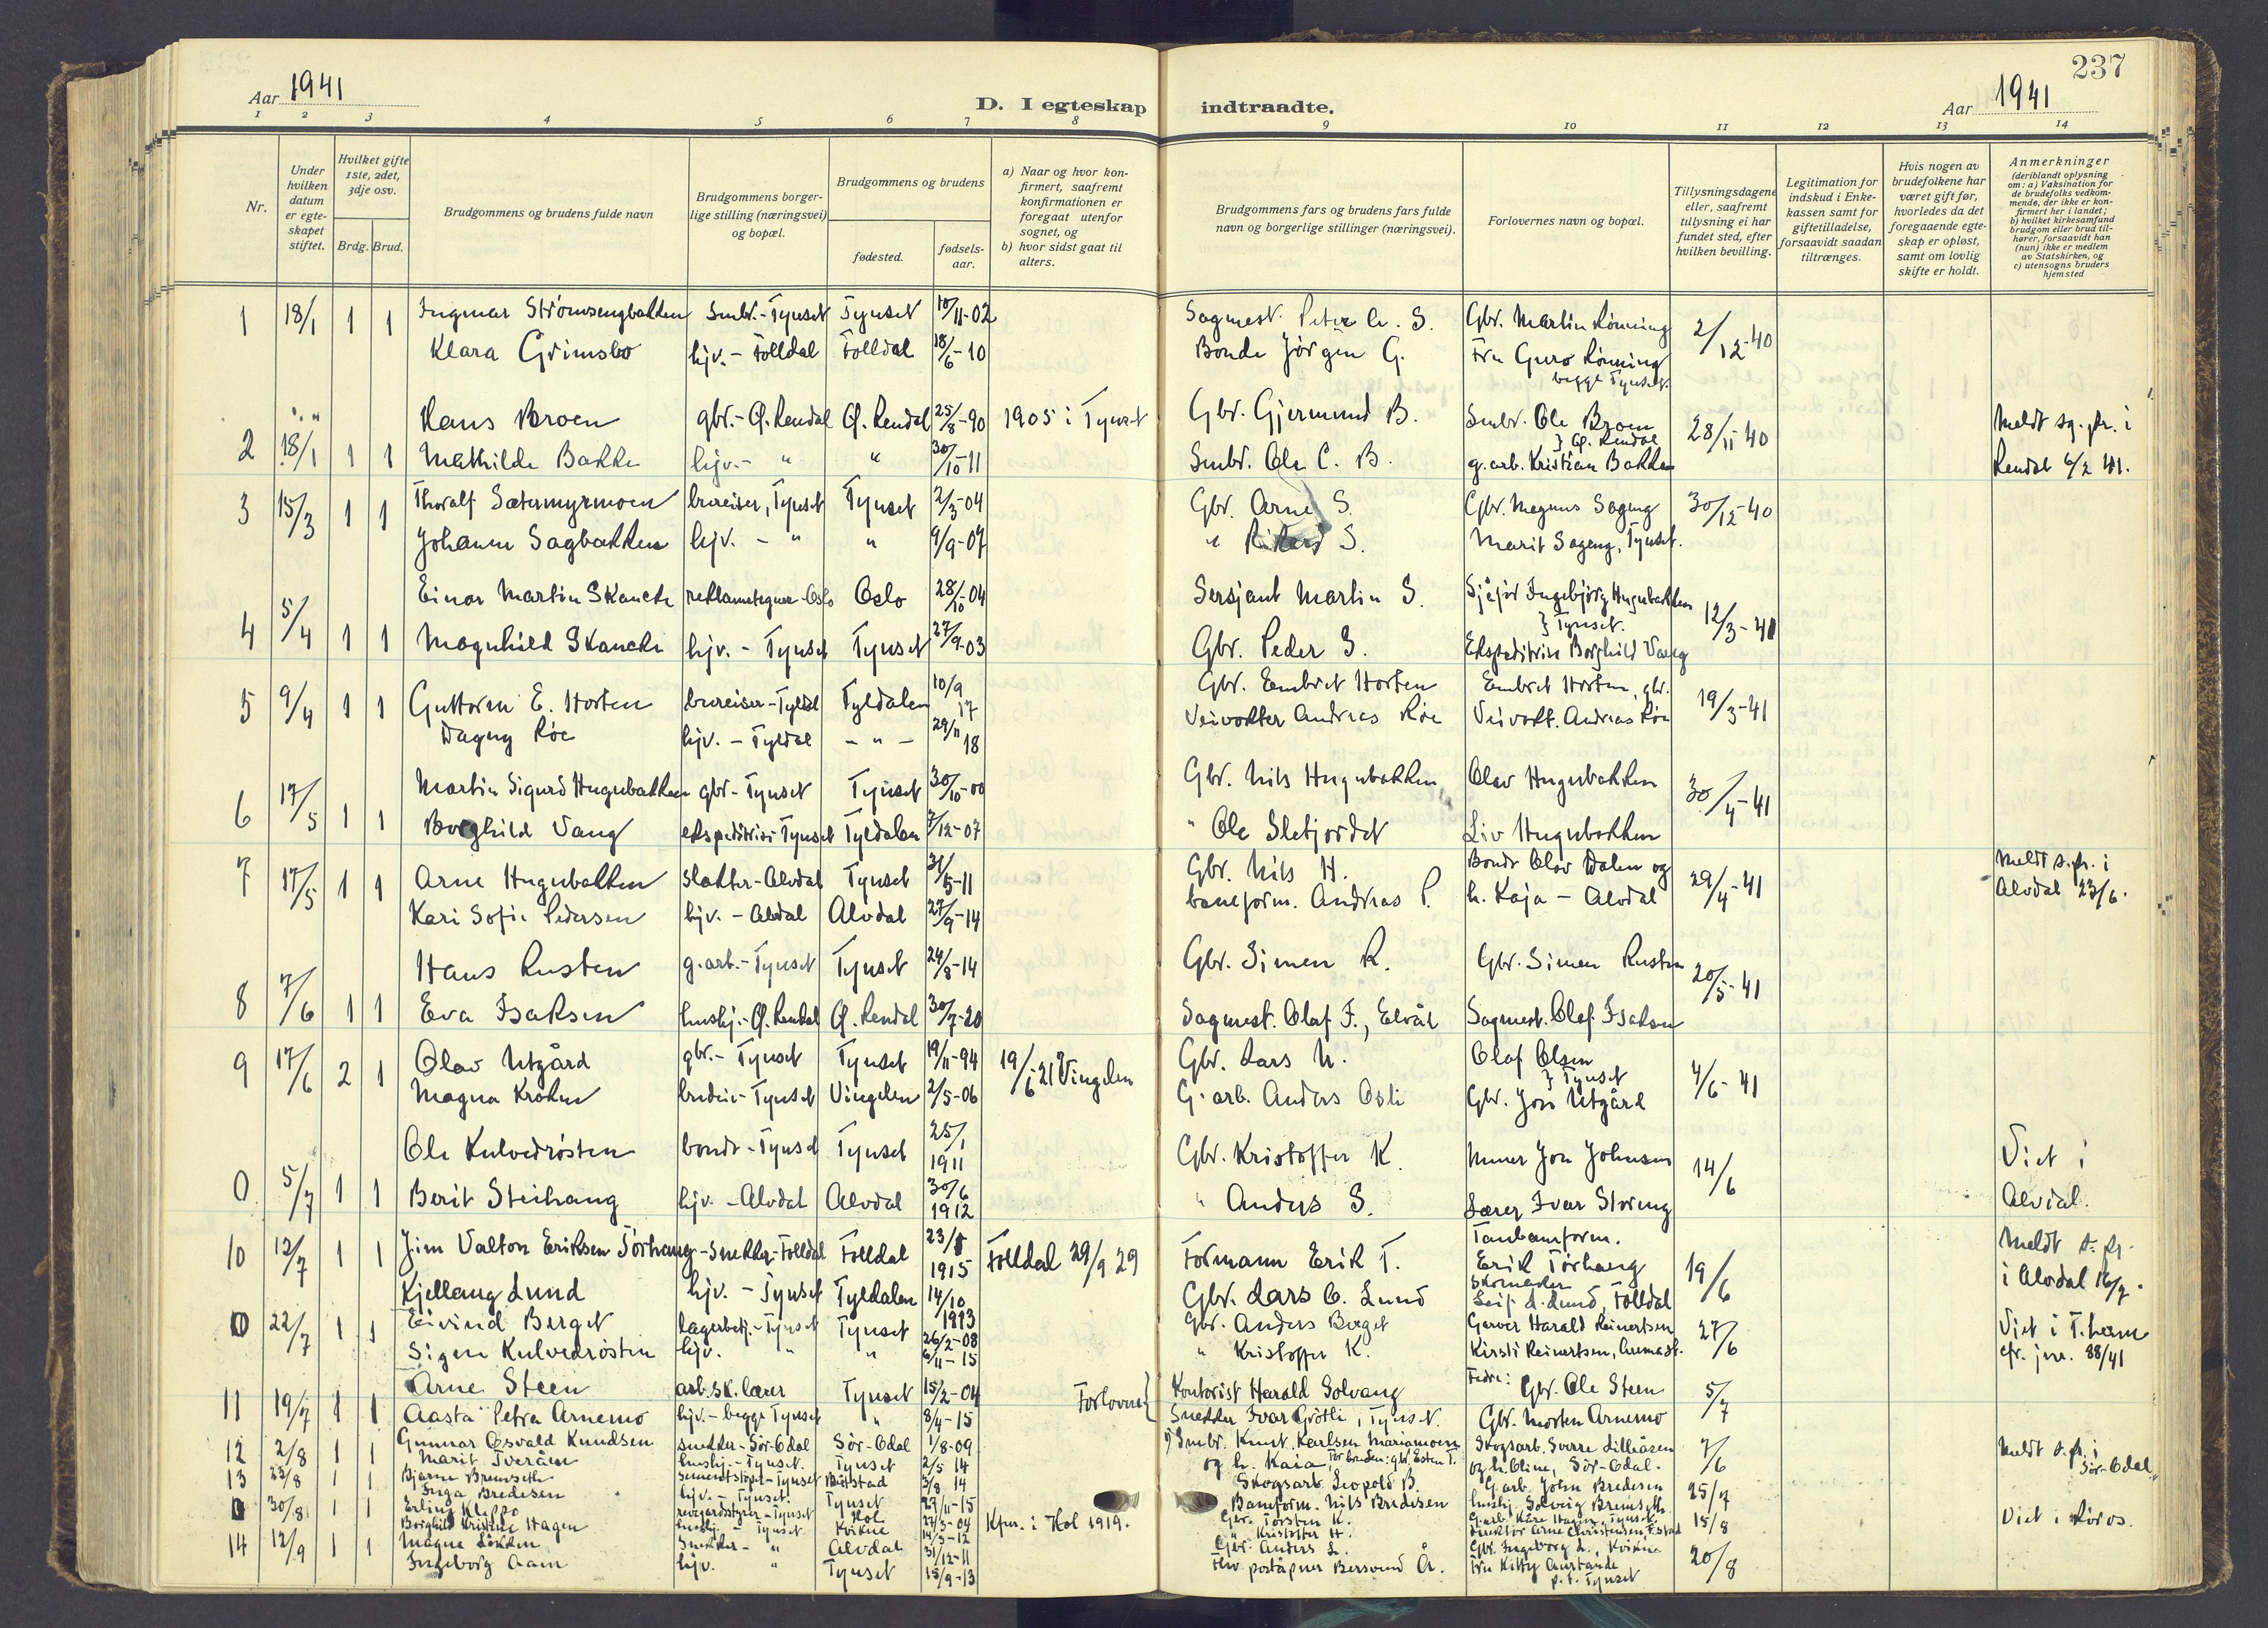 237
Aar 1941
D. I egteskap indtraadte.
Aar 1941
1 2 3 4 5 6 7 8 9 10 11 12 13 14
Nr.
Under hvilken datum er egteskapet stiftet.
Hvilket gifte 1ste, 2det, 3dje osv.
Brdg. Brud.
Brudgommens og brudens fulde navn
Brudgommens borgerlige stilling (næringsvei) og bopæl.
Brudgommens og brudens
fødested.
fødselsaar.
a) Naar og hvor konfirmert, saafremt konfirmationen er foregaat utenfor sognet, og
b) hvor sidst gaat til alters.
Brudgommens fars og brudens fars fulde navn og borgerlige stillinger (næringsvei).
Forlovernes navn og bopæl.
Tillysningsdagene eller, saafremt tillysning ei har fundet sted, efter hvilken bevilling.
Legitimation for indskud i Enkekassen samt for giftetilladelse, forsaavidt saadan tiltrænges.
Hvis nogen av brudefolkene har været gift før, hvorledes da det foregaaende egteskap er opløst, samt om lovlig skifte er holdt.
Anmerkninger (deriblandt oplysning om: a) Vaksination for de brudefolks vedkommende, der ikke er konfirmert her i landet; b) hvilket kirkesamfund brudgom eller brud tilhører, forsaavidt han (hun) ikke er medlem av Statskirken, og c) utensogns bruders hjemsted
1 18/1 1 1 Ingmar Strømsengbakken Smbr.-Tynset Tynset 10/11-02 Sagmest. Peter A. S. Gbr. Martin Rønning 2/12-40
Klara Grimsbo hjv. - Folldal Folldal 18/6-10 Bonde Jørgen G. Fru Guro Rønning
begge Tynset.
Hans Broen gbr.-Ø. Rendal Ø. Rendal 25/8-90 1905 i Tynset Gbr. Gjermund B. Smbr. Ole Broen 28/11-40 Meldt sg. pr. i
} Ø. Rendal
2 18/1 1 1 Mathilde Bakken hjv. - " " 30/10-11 Smbr. Ole C. B. g.arb. Kristian Bakken Rendal 6/2 41.
3 15/3 1 1 Thoralf Sætermyrmoen bureiser, Tynset Tynset 2/3-04 Gbr. Arne S. Gbr. Magnus Sageng 30/12-40
Johanne Sagbakken hjv. - " " 9/9-07 " S. Marit Sageng, Tynset.
Einar Martin Skancke reklametegner-Oslo Oslo 28/10-04 Sersjant Martin S. Ingebjørg Hugubakken
} Tynset.
4 5/4 1 1 Magnhild Skancke hjv. - Tynset Tynset 27/9-03 Gbr. Peder S. Ekspeditrise Borghild Vang 12/3-41
5 9/4 1 1 Guttorm E. Horten bureiser-Tyldal Tyldalen 10/9 17 Gbr. Embret Horten Embret Horten, gbr. 19/3-41
Dagny Røe hjv. - Tyldal - " - 29/11 18 Veivokter Andreas Røe Veivokt. Andreas Røe
Martin Sigurd Hugubakken gbr-Tynset Tynset 30/10-00 Gbr. Nils Hugubakken Olav Hugubakken 30/4-41
6 17/5 1 1 Borghild Vang ekspeditrise-Tynset Tyldalen 7/12-07 " Ole Sletjordet Liv Hugubakken
7 17/5 1 1 Arne Hugubakken slakter-Alvdal Tynset 31/5-11 Gbr. Nils H. Bonde Olav Dalen og 29/4-41 Meldt s.pr. i
Kari Sofie Pedersen hjv. - Alvdal Alvdal 27/9-14 baneform. Andreas P. h. Kaja - Alvdal Alvdal 23/6.
Hans Rusten g.arb.-Tynset Tynset 24/8-14 Gbr. Simen R. Gbr. Simen Rusten 20/5-41
8 7/6 1 1 Eva Isaksen hushj.-Ø. Rendal Ø. Rendal 30/7-20 Sagmest. Olaf I., Elvål Sagmest. Olaf Isaksen
9 17/6 2 1 Olav Utgård gbr.- Tynset Tynset 19/11-94 19/6-21 Vingelen Gbr. Lars U. Olaf Olsen 4/6-41
} Tynset
Magna Krohn budeie-Tynset Vingelen 2/5-06 G. arb. Anders Osli Gbr. Jon Utgård
Ole Kulvedrøsten bonde-Tynset Tynset 25/1 1911 Gbr. Kristoffer K. Murer Jon Johnsen 14/6 Viet i
0 5/7 1 1 Berit Steihaug hjv. - Alvdal Alvdal 30/6 1912 " Anders S. Lærer Ivar Storeng Alvdal.
10 12/7 1 1 Jim Valton Eriksen Tørhaug - Snekker-Folldal Folldal 23/8 1915 Folldal 29/9 29 Formann Erik T. Taubaneform. Erik Tørhaug 19/6 Meldt s. pr.
Kjellaug Lund hjv. - Tynset Tyldalen 14/10 1913 Gbr. Lars O. Lund Skomaker Leif L. Lund, Folldal i Alvdal 16/7.
0 22/7 1 1 Eivind Berget lagerbetj.-Tynset Tynset 26/2-08 Gbr. Anders Berget Garver Harald Reinertsen 27/6 Viet i T.heim
Signe Kulvedrøsten hjv. " " 6/11-15 " Kristoffer K. Kirsti Reinertsen, cfr. jnr. 88/41
11 19/7 1 1 Arne Steen arb.sk.lærer Tynset 15/2-04 Forlovere { Kontorist Harald Solvang Fedre: Gbr. Ole Steen 5/7
Aasta Petra Arnemo hjv.-begge Tynset " 8/4-15 Snekker Ivar Grøtli, Tynset. Gbr. Morten Arnemo
12 2/8 1 1 Gunnar Osvald Knudsen snekker-Sør-Odal Sør-Odal 1/8-09 Smbr. Knut Karlsen Mariamoen Skogsarb. Sverre Lilleåsen 7/6 Meldt s.pr. i
Marit Tveråen hushj.-Tynset. Tynset 2/5 14 og h. Kaia, For bruden: gbr. Esten T. og h. Oline, Sør-Odal. Sør-Odal
13 23/8 1 1 Bjarne Bremseth sementstøper-Tynset 3/8 14 Skogsarb. Leopold B. G.arb. John Bredesen 25/7
Inga Bredesen hjv. - Tynset. Tynset 27/11-15 Baneform. Nils Bredesen hushj. Solveig Bremseth
30/8 1 1 Erling Kleppo revegårdsstyrer-Tynset Hol 27/3-04 Kfm. i Hol 1919. Gbr. Torsten K. G.arb. Kåre Hagen, Tynset. 15/8 Viet i Røros.
Borghild Kristine Hagen hushj. - Tynset Kvikne 14/3-12 " Kristoffer H. Direktør Arne Christensen
14 12/9 1 1 Magne Løkken Snekker - " Alvdal 31/12-11 Gbr. Anders L. Gbr. Ingeborg L., Kvikne 20/8
Ingeborg Aaen hjv. " Tynset 15/9-13 Fhv. poståpner Bersvend Å. Fru Kitty Aurstande
p.t. Tynset